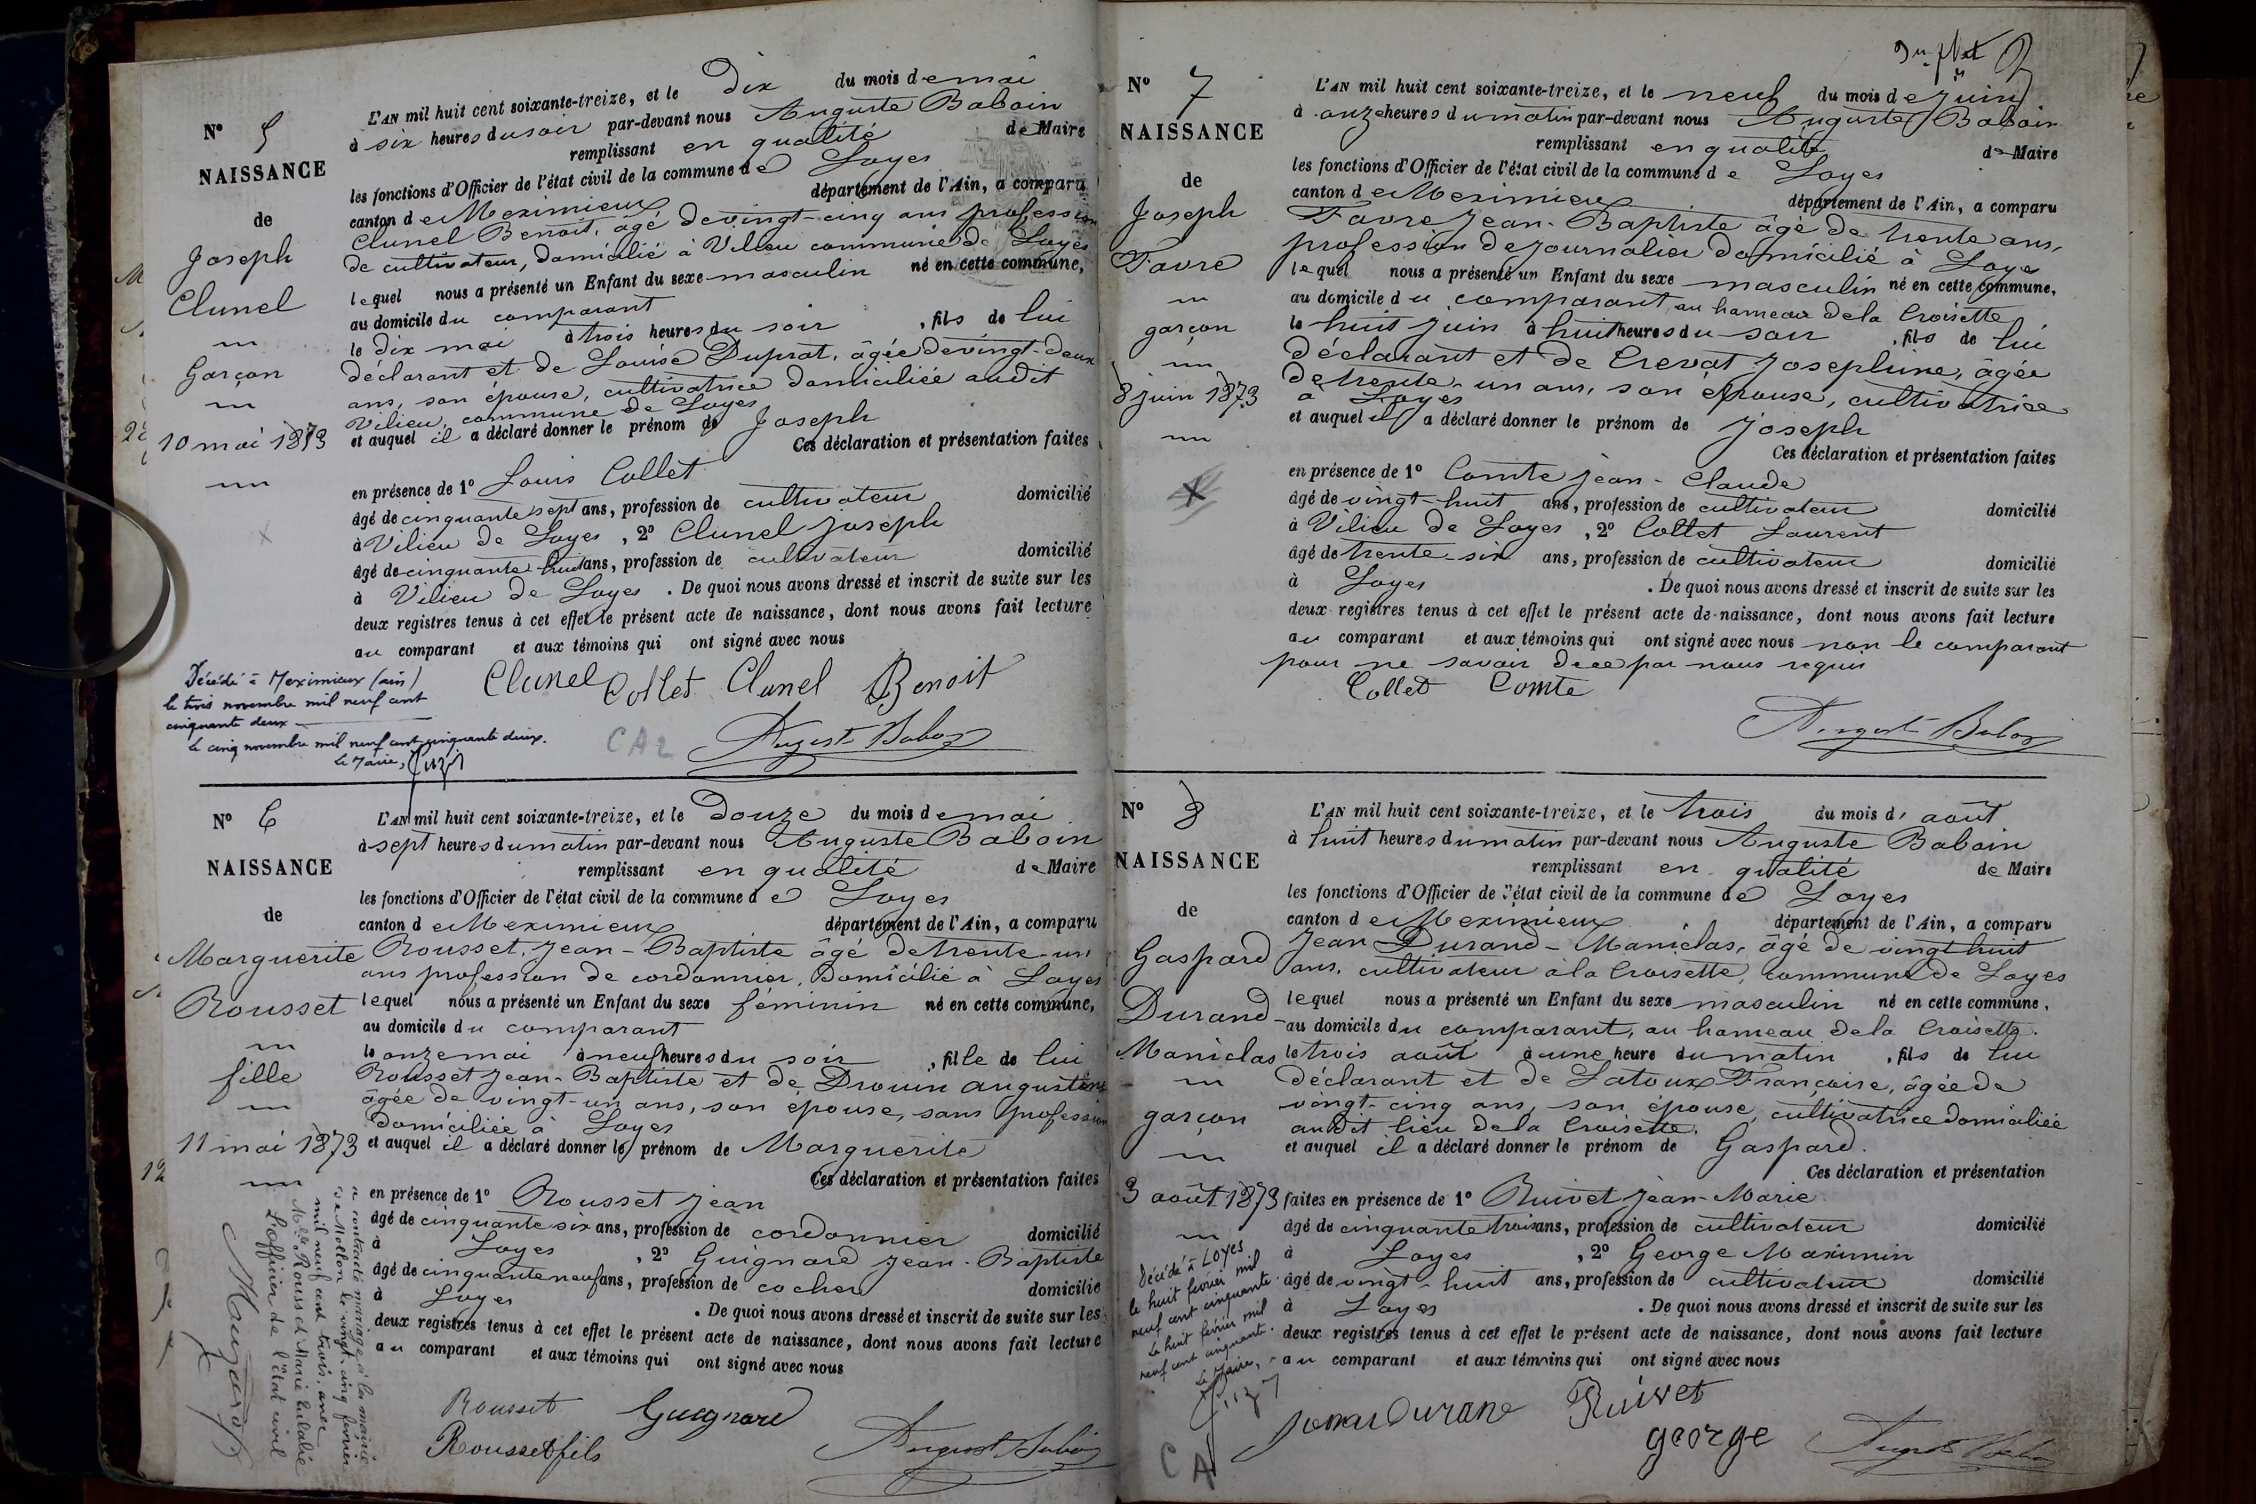 N° 5
NAISSANCE
de
Joseph
Clunel
Garçon
10 mai 1873
L'AN mil huit cent soixante-treize, et le Dix du mois de mai
à six heures du soir par-devant nous Auguste Baboin
remplissant en qualité de Maire
les fonctions d'Officier de l'état civil de la commune de Loyes
canton de Meximieux département de l'Ain, a comparu
Clunel Benoit, âgé de vingt-cinq ans profession
de cultivateur, domicilié à Vilieu commune de Loyes
lequel nous a présenté un Enfant du sexe masculin né en cette commune,
au domicile du comparant
le dix mai à trois heures du soir, fils de lui
déclarant et de Louise Duprat, âgée de vingt-deux
ans, son épouse, cultivatrice domiciliée audit
Vilieu, commune de Loyes
et auquel il a déclaré donner le prénom de Joseph
Ces déclaration et présentation faites
en présence de 1° Louis Collet
âgé de cinquante sept ans, profession de cultivateur domicilié
à Vilieu de Loyes, 2° Clunel Joseph
âgé de cinquante huit ans, profession de cultivateur domicilié
à Vilieu de Loyes. De quoi nous avons dressé et inscrit de suite sur les
deux registres tenus à cet effet le présent acte de naissance, dont nous avons fait lecture
au comparant et aux témoins qui ont signé avec nous
Clunel Collet Clunel Benoit
Décédé à Meximieux (ain)
le trois novembre mil neuf cent
cinquante deux
le cinq novembre mil neuf cent cinquante deux.
Le Maire,
CA2
N° 6
NAISSANCE
de
Marguerite
Rousset
fille
11 mai 1873
L'AN mil huit cent soixante-treize, et le Douze du mois de mai
à sept heures du matin par-devant nous Auguste Baboin
remplissant en qualité de Maire
les fonctions d'Officier de l'état civil de la commune de Loyes
canton de Meximieux département de l'Ain, a comparu
Rousset, Jean-Baptiste âgé de trente-un
ans profession de cordonnier, Domicilié à Loyes
lequel nous a présenté un Enfant du sexe féminin né en cette commune,
au domicile du comparant
le onze mai à neuf heures du soir, fille de lui
Rousset Jean-Baptiste et de Drouin Augustine
âgée de vingt-un ans, son épouse, sans profession
domiciliée à Loyes
et auquel il a déclaré donner le prénom de Marguerite
Ces déclaration et présentation faites
en présence de 1° Rousset Jean
âgé de cinquante six ans, profession de cordonnier domicilié
à Loyes, 2° Guignard Jean-Baptiste
âgé de cinquante neuf ans, profession de cocher domicilié
à Loyes. De quoi nous avons dressé et inscrit de suite sur les
deux registres tenus à cet effet le présent acte de naissance, dont nous avons fait lecture
au comparant et aux témoins qui ont signé avec nous
Rousset Guignard
Rousset fils
a contracté mariage à la mairie
de Mollon le vingt-cinq février
mil neuf cent trois, avec
Rousset Marie Eulalie
L'officier de l'état civil
N° 7
NAISSANCE
de
Joseph
Favre
garçon
8 juin 1873
L'AN mil huit cent soixante-treize, et le neuf du mois de Juin
à onze heures du matin par-devant nous Auguste Baboin
remplissant en qualité de Maire
les fonctions d'Officier de l'état civil de la commune de Loyes
canton de Meximieux département de l'Ain, a comparu
Favre Jean-Baptiste âgé de trente ans,
profession de journalier domicilié à Loyes
lequel nous a présenté un Enfant du sexe masculin né en cette commune,
au domicile du comparant, au hameau de la Croisette
le huit juin à huit heures du soir, fils de lui
déclarant et de Crevat Josephine, âgée
de trente-un ans, son épouse, cultivatrice
à Loyes
et auquel il a déclaré donner le prénom de Joseph
Ces déclaration et présentation faites
en présence de 1° Comte Jean-Claude
âgé de vingt-huit ans, profession de cultivateur domicilié
à Vilieu de Loyes, 2° Collet Laurent
âgé de trente-six ans, profession de cultivateur domicilié
à Loyes. De quoi nous avons dressé et inscrit de suite sur les
deux registres tenus à cet effet le présent acte de naissance, dont nous avons fait lecture
au comparant et aux témoins qui ont signé avec nous non le comparant
pour ne savoir de ce par nous requis
Collet Comte
N° 8
NAISSANCE
de
Gaspard
Durand-
Maniclas
garçon
3 août 1873
L'AN mil huit cent soixante-treize, et le trois du mois d'août
à huit heures du matin par-devant nous Auguste Baboin
remplissant en qualité de Maire
les fonctions d'Officier de l'état civil de la commune de Loyes
canton de Meximieux département de l'Ain, a comparu
Jean Durand-Maniclas, âgé de vingt huit
ans, cultivateur à la Croisette, commune de Loyes
lequel nous a présenté un Enfant du sexe masculin né en cette commune,
au domicile du comparant, au hameau de la Croisette.
le trois août à une heure du matin, fils de lui
déclarant et de Latoux Françoise, âgée de
vingt-cinq ans, son épouse, cultivatrice domiciliée
audit lieu de la Croisette.
et auquel il a déclaré donner le prénom de Gaspard.
Ces déclaration et présentation
faites en présence de 1° Ruivet Jean-Marie
âgé de cinquante trois ans, profession de cultivateur domicilié
à Loyes, 2° George Maximin
âgé de vingt-huit ans, profession de cultivateur domicilié
à Loyes. De quoi nous avons dressé et inscrit de suite sur les
deux registres tenus à cet effet le présent acte de naissance, dont nous avons fait lecture
au comparant et aux témoins qui ont signé avec nous
Durand Ruivet
george
Décédé à Loyes
le huit février mil
neuf cent cinquante.
Le huit février mil
neuf cent cinquante.
Le Maire,
CA